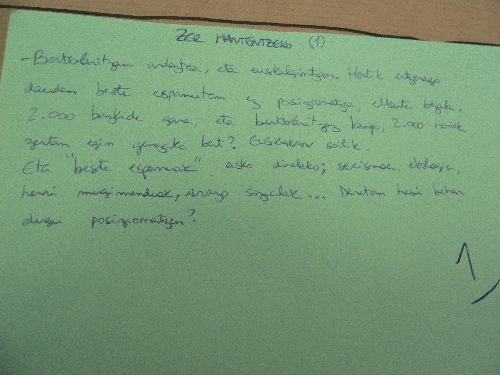 ZER MANTENTZEKO (1)
- Bertsolaritzan indartzea, eta euskalgintzan. Hortik urrunago
dauden beste esparruetan ez posizionatzea, elkarte bezala.
2.000 bazkide gara, eta bertsolaritzaz kanpo, 2.000 horiek
zertan egin genezake bat? Euskeraren soilik.
Eta "beste esparruak" asko direlako; sexismoa, ekologia,
herri mugimenduak, arazo sozialak... Denetan hasi behar
dugu posizionatzen?
1